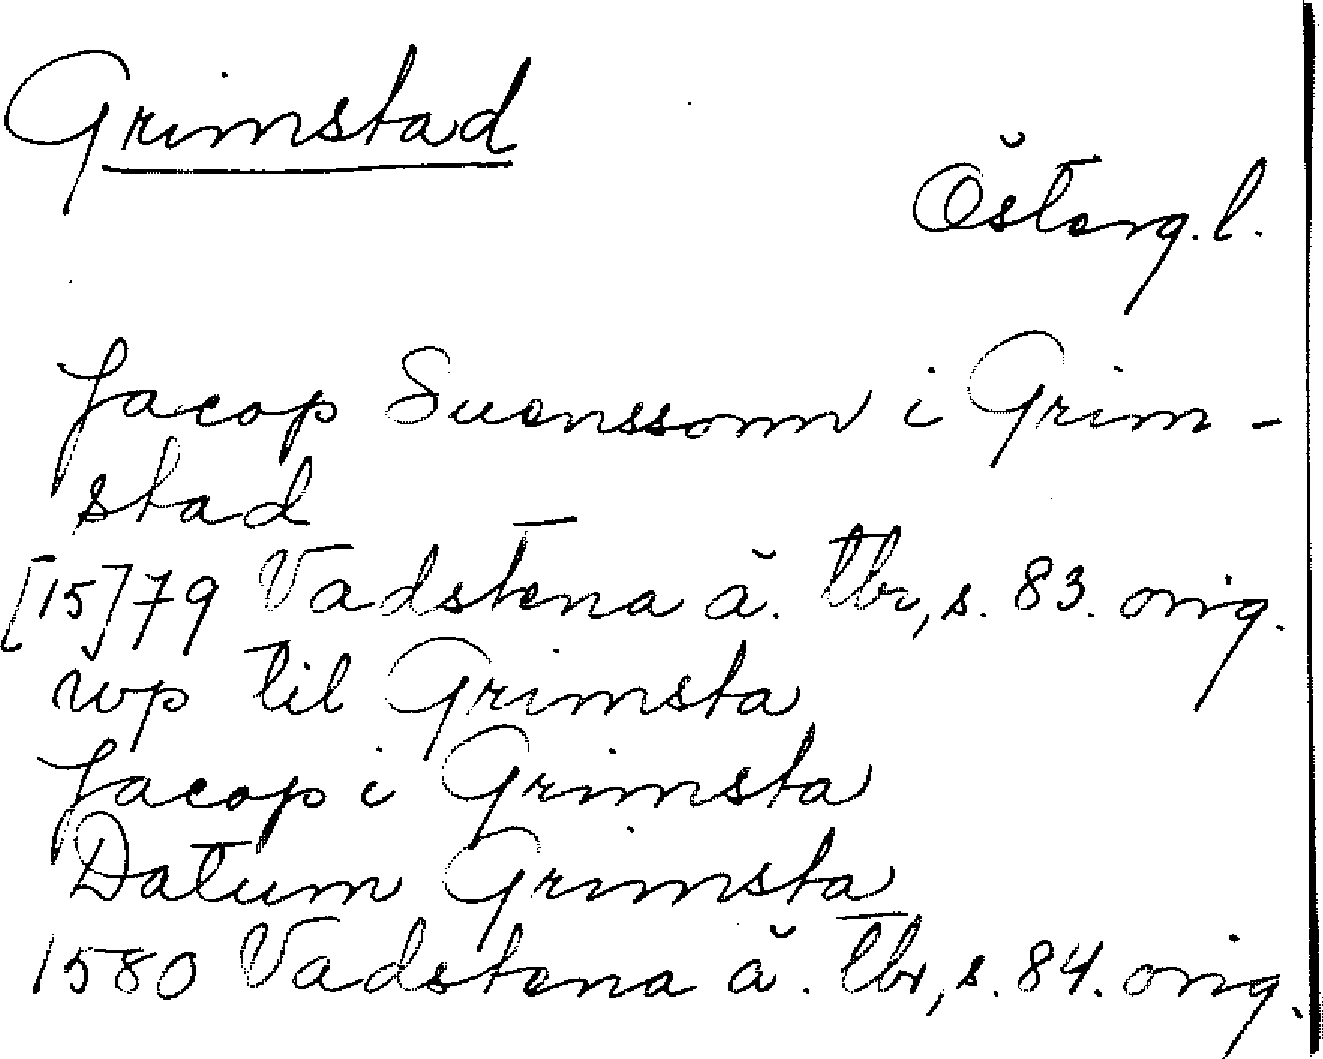 Grimstad
Österg.l.
Jacop Suenssonn i Grim-
stad
[15]79 Vadstena ä. tbr, s. 83. orig.
wp til Grimsta
Jacop i Grimsta
Datum Grimsta
1580 Vadstena ä. tbr, s. 84. orig.